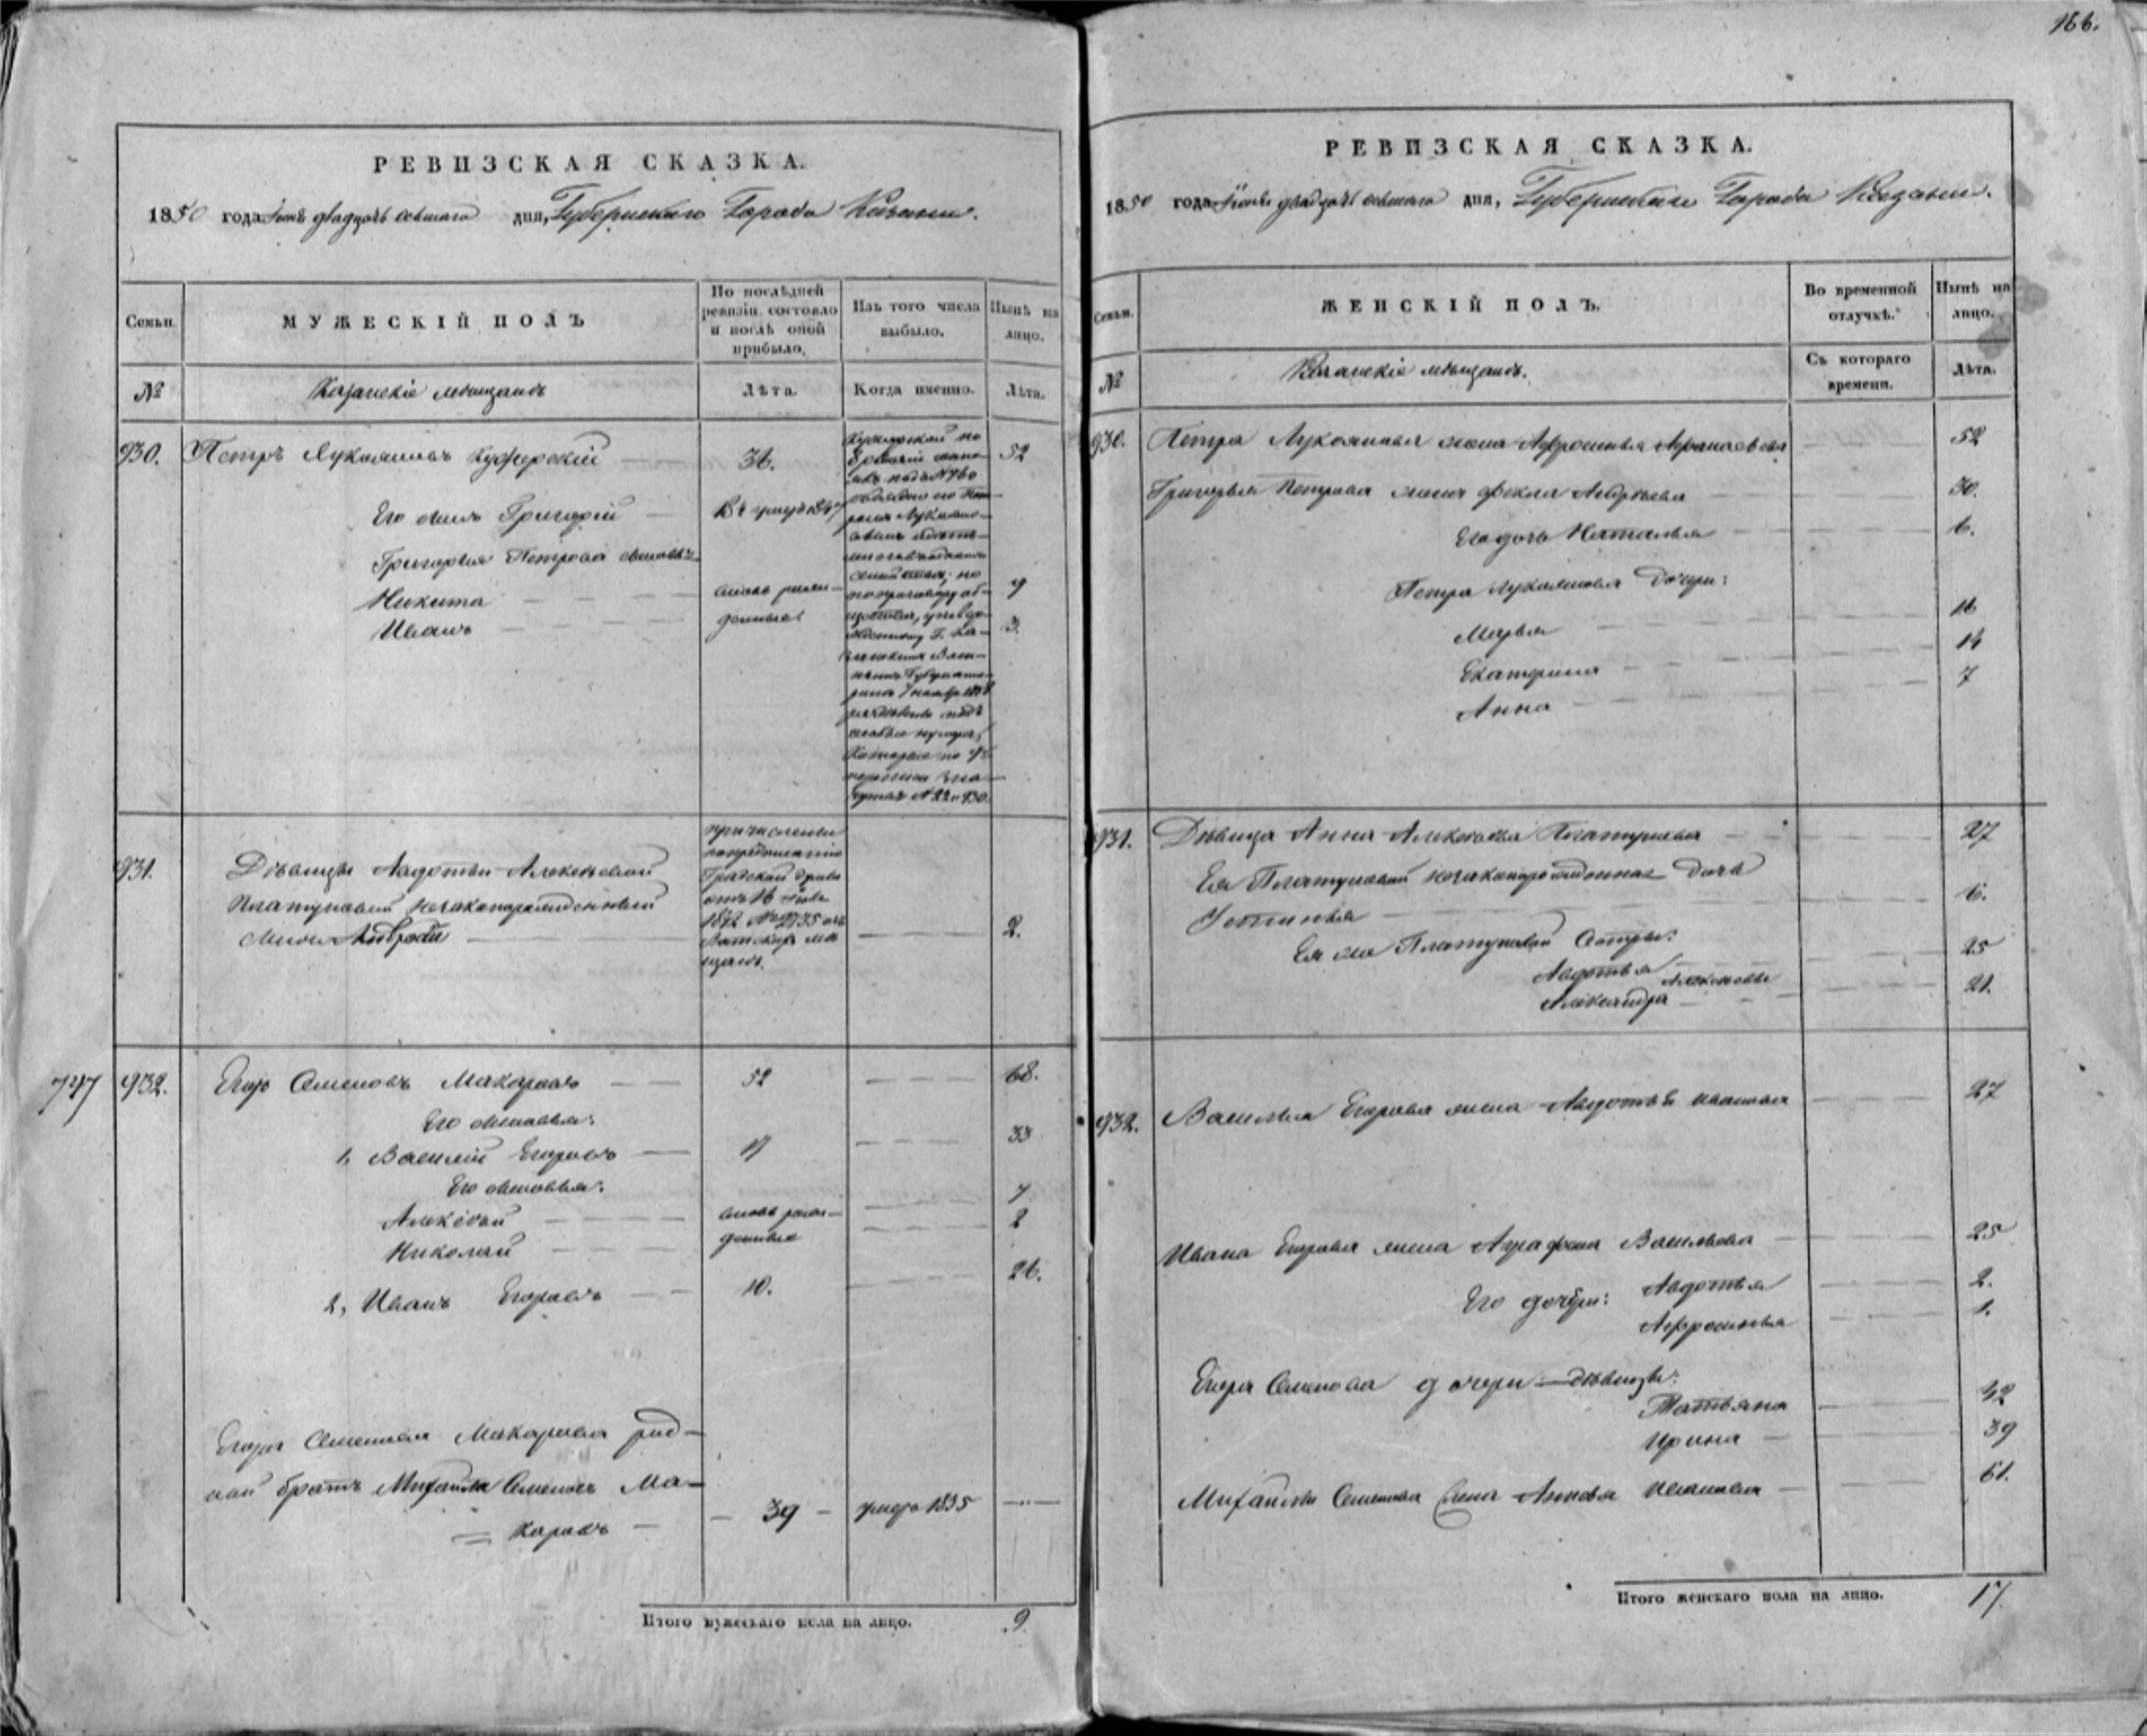 166.
РЕВИЗСКАЯ СКАЗКА.
1850 года Іюня двадцать седьмаго дня, Губернскаго Города Казани.
Семьи.
МУЖЕСКІЙ ПОЛЪ
По послѣдней
ревизіи состояло
и послѣ оной
прибыло.
Изъ того числа
выбыло.
Нынѣ на
лицо.
№
Казанскіе мѣщане
Лѣта.
Когда именно.
Лѣта.
930.
Петръ Лукояновъ
36.
52
Его сынъ Григорій
Григорья Петрова сыновья
Никита
вновь рож-
9
Иванъ
денные
3.
по
подъ № 760
семейства, но
по приговору об-
щества,
Г. Ка-
Губернато-
подъ
особые нумера,
которые по 9й
№ 22 и 930.
931.
Дѣвицы Авдотьи Алексѣевой
Платуновой незаконорожденный
сынъ Амвросій
2.
причислены
Градской Думы
отъ 16
№ 2735 изъ
мѣ
щанъ.
747
932.
Егоръ Семеновъ Макаровъ
52
68.
Его сыновья:
1, Василій Егоровъ
17
33
Его сыновья:
Алексѣй
вновь рож-
7
Николай
денные
2
2, Иванъ Егоровъ
10.
26.
Егора Семенова Макарова род-
ной братъ Михайла Семеновъ Ма-
каровъ
39
умеръ 1835
Итого мужескаго пола на лицо.
9.
РЕВИЗСКАЯ СКАЗКА.
1850 года Іюня двадцать седьмаго дня, Губернскаго Города Казани.
Семьи.
ЖЕНСКІЙ ПОЛЪ.
Во временной
отлучкѣ.
Нынѣ на
лицо.
№
Казанскіе мѣщане.
Съ котораго
времени.
Лѣта.
930.
Петра Лукоянова жена Афросинья Афанасьева
52
Григорья Петрова жена Фекла Андреева
30.
Его дочь Наталья
6.
Петра Лукоянова дочери:
Марья
16
Екатерина
14
Анна
7
931.
Дѣвица Анна Алексѣева Платунова
27
Ея Платуновой незаконорожденная дочь
Устинья
6.
Ея же Платуновой сестры:
Авдотья
Алексѣевы
25
Александра
21.
932.
Василья Егорова жена Авдотья Иванова
27
Ивана Егорова жена Аграфена Васильева
25
Его дочери: Авдотья
2.
Афросинья
1.
Егора Семенова дочери дѣвицы:
Татьяна
42
Ирина
39
Михайлы Семенова жена Анна Иванова
61.
Итого женскаго пола на лицо.
17.